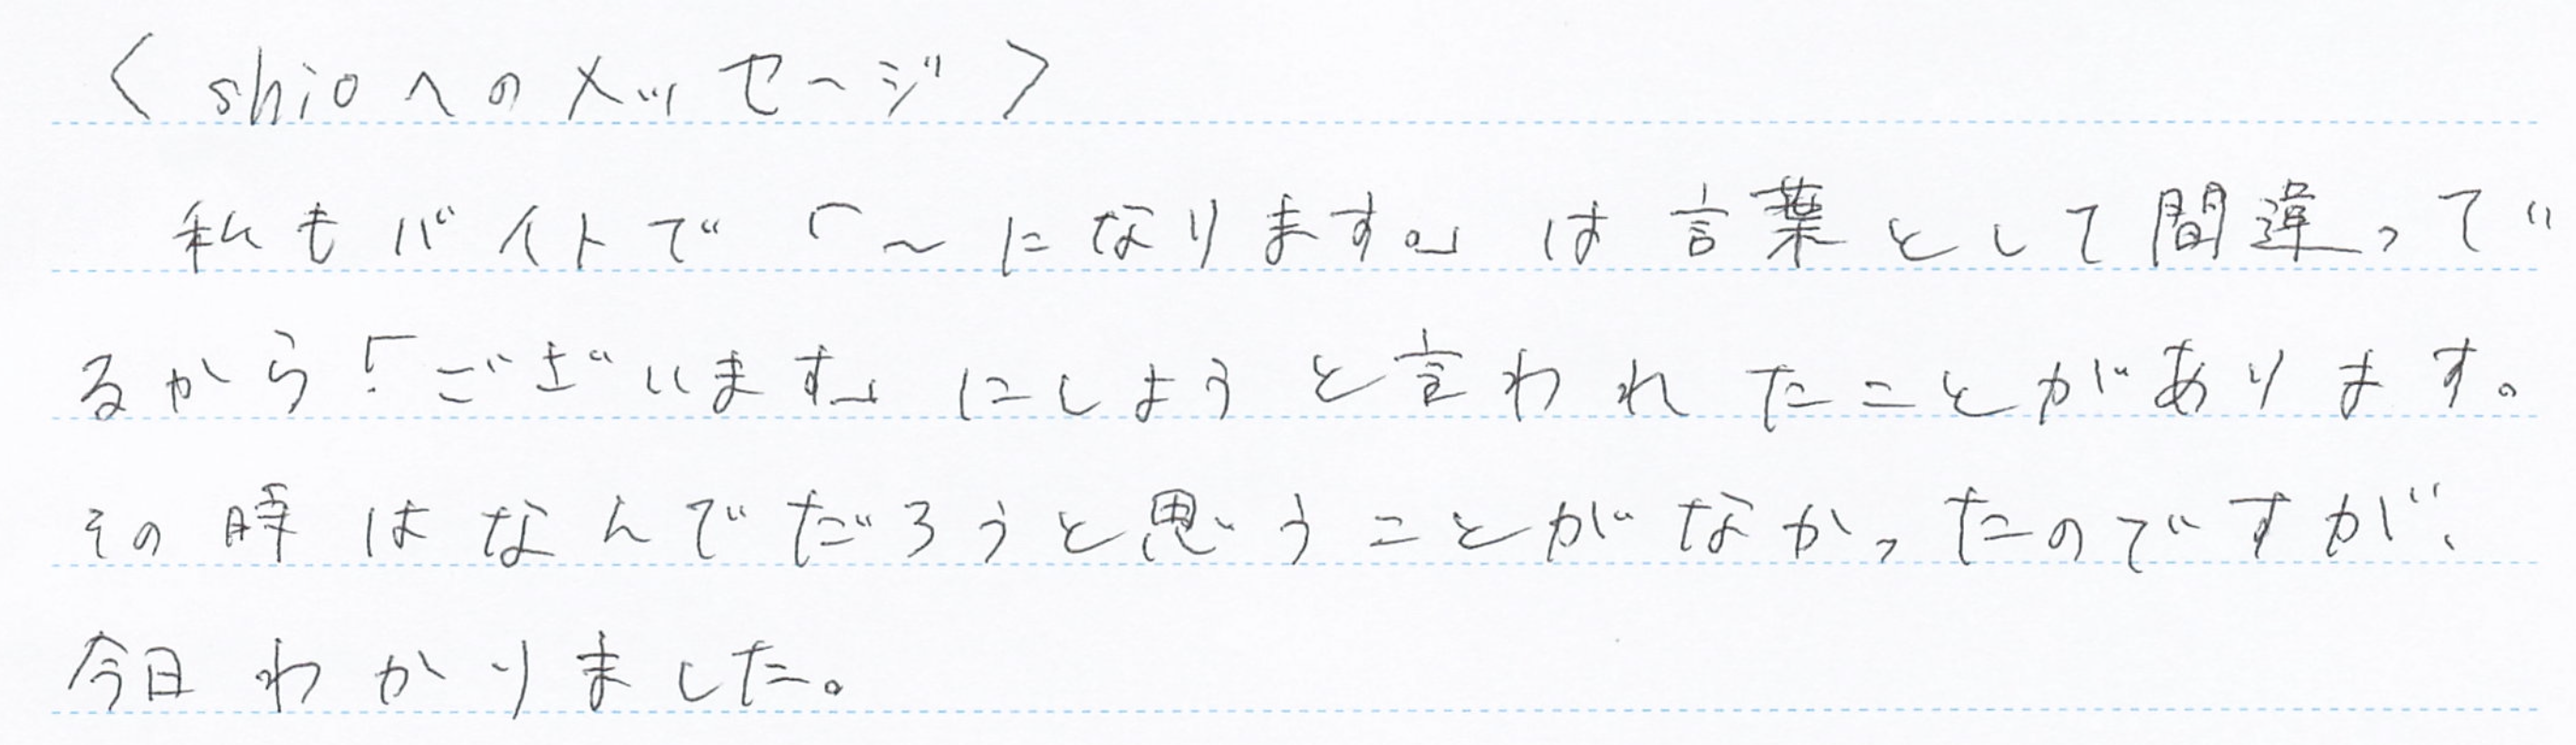 〈shioへのメッセージ〉
私もバイトで「～になります。」は言葉として間違ってい
るから「ございます」にしようと言われたことがあります。
その時はなんでだろうと思うことがなかったのですが、
今日わかりました。